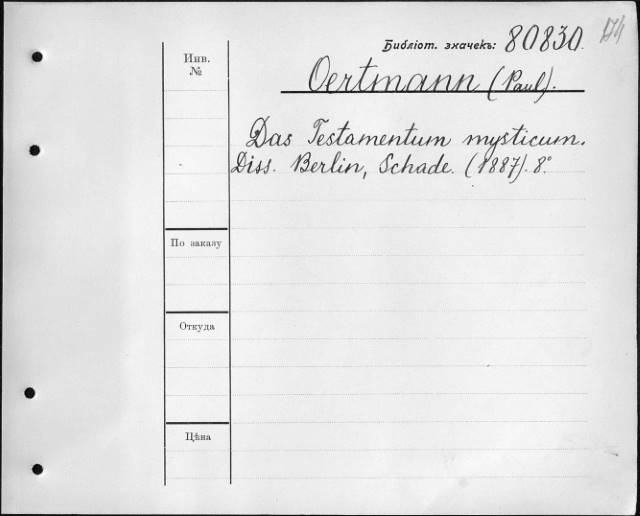 Библіот. значекъ: 80830.
Oertmann (Paul).
Инв.
№
Das Testamentum mysticum.
Diss. Berlin, Schade. (1887). 8°
По заказу
Откуда
Цѣна